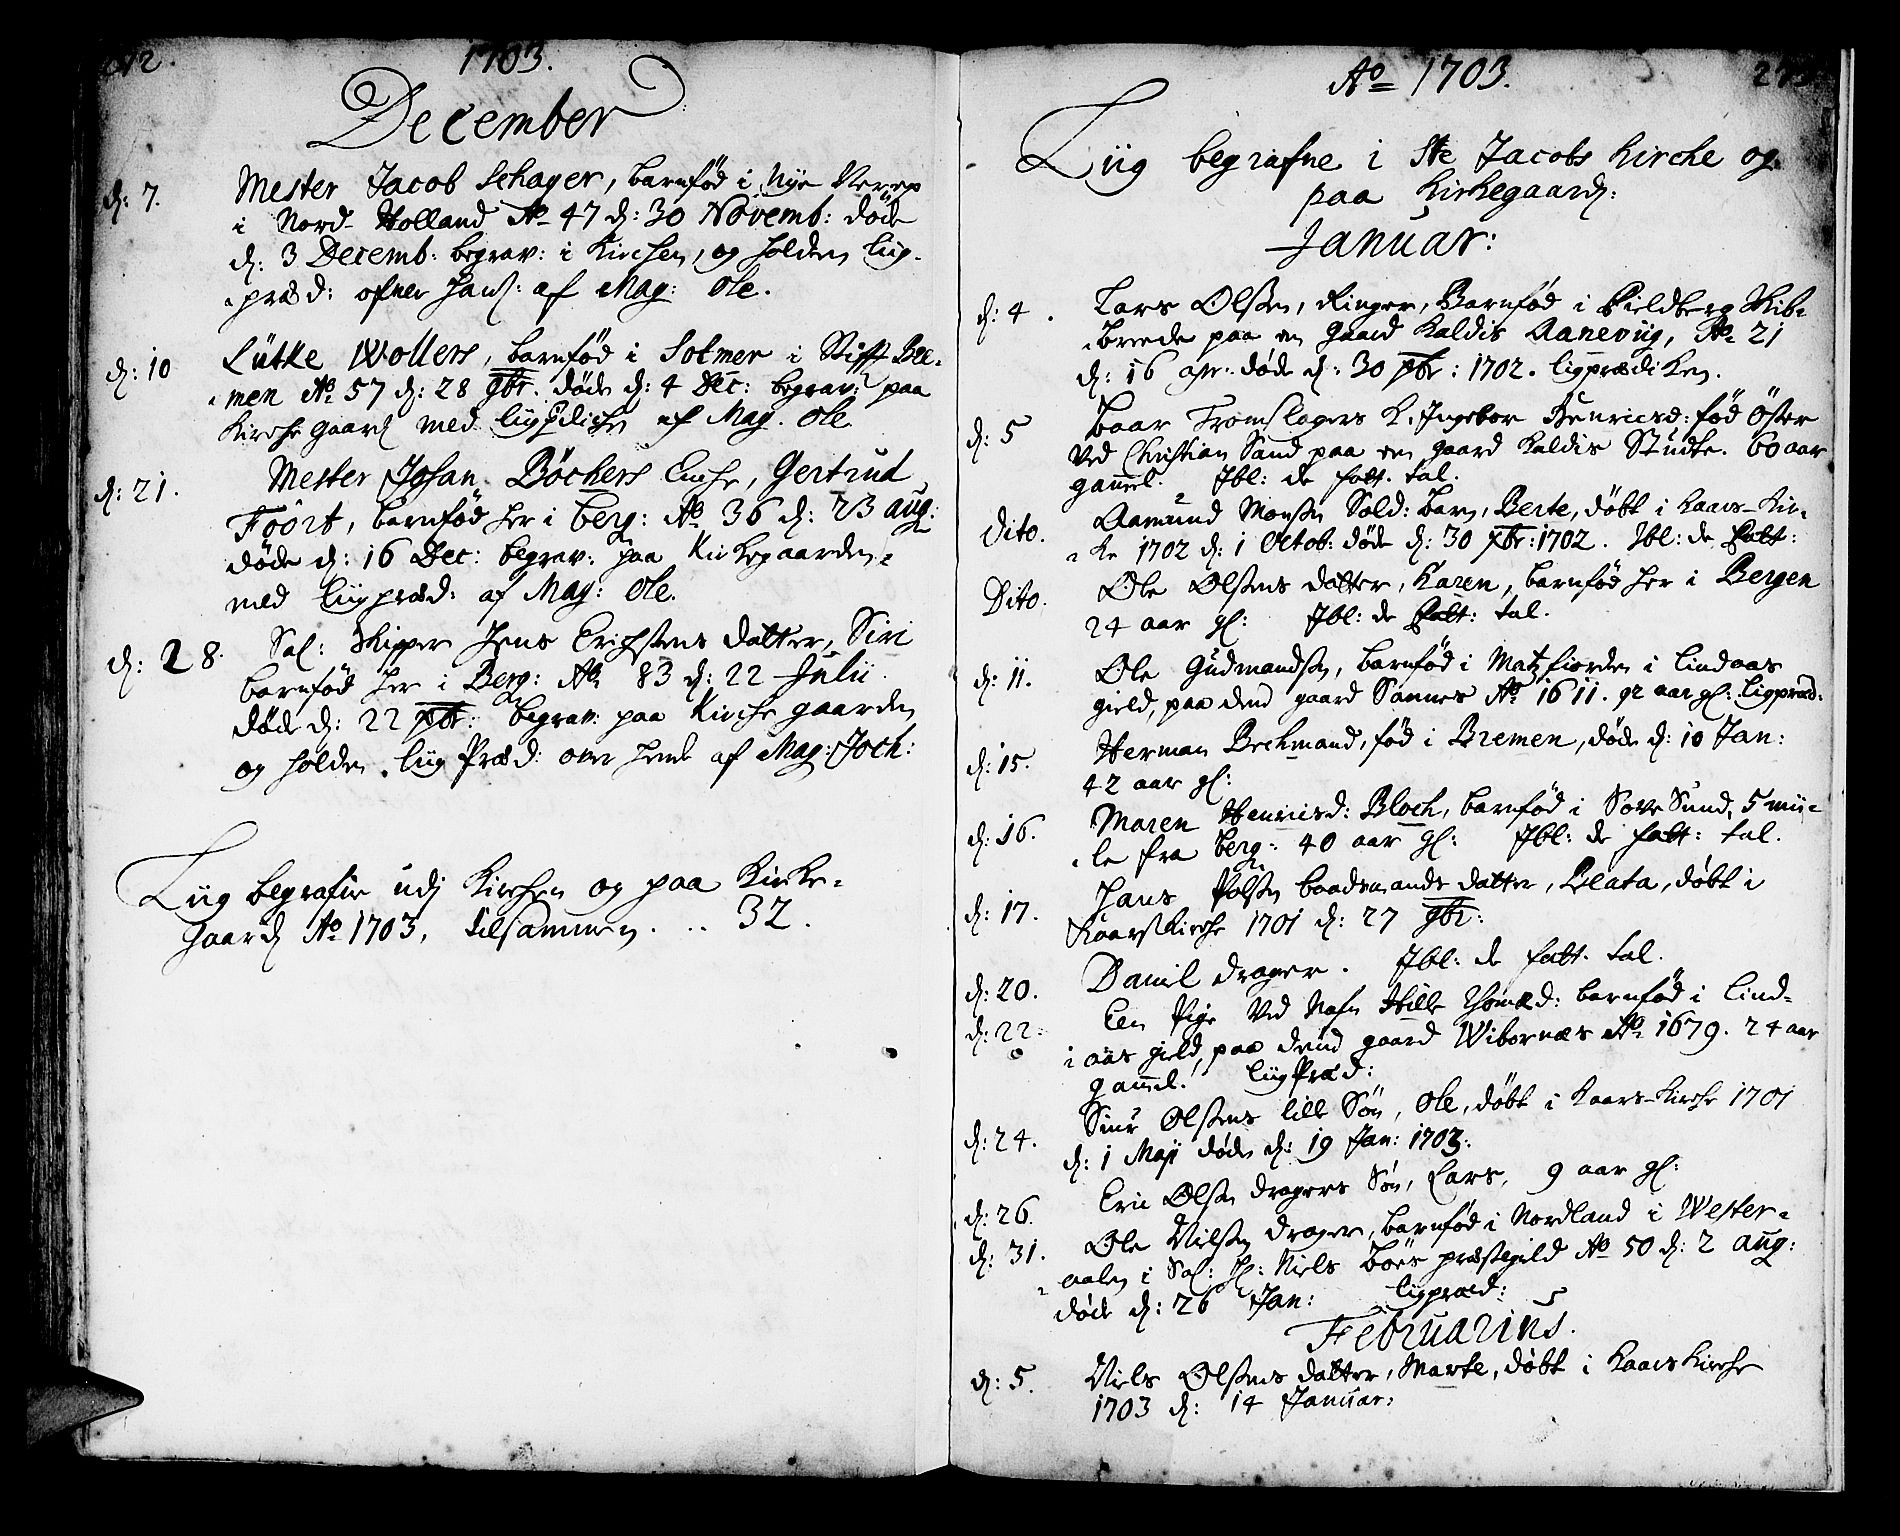 1703.
December
d: 7.
Mester Jacob Schager, barnfød i Nye
i Nord-Holland Ao 47 d: 30 Novemb: døde
d: 3 Decemb: begrav: i Kirchen, og holden liig-
præd: ofver hans: af Mag: Ole.
d: 10
Lütke Wollers, barnfød i Solmer i Stifft Bre-
men Ao 57 d: 28 9br. døde d: 4 Dec: begrav: paa
Kirche gaard med af Mag. Ole
d: 21.
Mester Johan Böchers Enche, Gertrud
Foört, barnfød her i berg: Ao 36 d: 23 aug:
døde d: 16 Dec: begrav: paa Kirkegaarden
med liigpræd: af Mag: Ole.
d: 28.
Sal: Skipper Jens Erichsens datter, Siri
barnfød her i Berg: Ao 83 d: 22 Julii.
døde d: 22 xbr: begrav: paa Kirche gaarden
og holden liig Præd: over hende af Mag: Joch:
Liig begrafne udj Kirchen og paa Kirke-
gaard Ao 1703, tilsammen . .. 32.
Ao 1703.
Liig begrafne i Ste Jacobs Kirche og
paa Kirkegaard:
Januar:
d: 4.
Lars Olsen, Ringer, Barnfød i Skib-
brede paa en gaard kaldis Aaneviig, Ao 21
d: 16 apr. døde d: 30 xbr: 1702. ligprædiken.
d: 5
Baar Tromslagers K. Ingebor Henricsd: fød öster
ved Christian Sand paa en gaard kaldis Studke. 60 aar
gammel. Ibl: de fatt. tal.
Dito.
Aamund Monsen Sold: barn, Berte, døbt i Kaars-Kir-
ke 1702 d: 1 Octob: døde d: 30 xbr: 1702. Ibl: de fatt:
Dito.
Ole Olsens datter, Karen, barnfød her i Bergen
24 aar gl: Ibl: de fatt: tal.
d: 11.
Ole Gudmandsen, barnfød i Matzfiorden i Lindaas
gield, paa dend gaard Sannes Ao 1611. 92 aar gl: Ligpræd:
d: 15.
Herman Bechmand, fød i Bremen, døde d: 10 Jan:
42 aar gl:
d: 16.
Maren Henricsd: Bloch, barnfød i Sove Sund, 5 mii-
le fra berg: 40 aar gl: Ibl: de fatt: tal.
d: 17.
Hans Polsen baadsmands datter, Beata, døbt i
Kaars Kirche 1701 d: 27 9br:
d: 20.
Daniel drager. Ibl: de fatt. tal.
d: 22.
Een Pige ved Nafn Hille barnfød i Lind-
aas gield, paa dend gaard Wibornæs Ao 1679. 24 aar
gammel. Liig Præd:
d: 24.
Siur Olsens lille Søn, Ole, døbt i Kaars-Kirche 1701
d: 1 Maji døde d: 19 Jan: 1703.
d: 26.
Eric Olsen dragers Søn, Lars, 9 aar gl:
d: 31.
Ole Nilsen drager, barnfød i Nordland i Wester-
aalen i Sal: Hr: Niels Böes præstegield Ao 50 d: 2 aug:
døde d: 26 Jan: ligpræd:
Februarius.
d: 5.
Niels Olsens datter, Marte, døbt i Kaars Kirche
1703 d: 14 Januar: